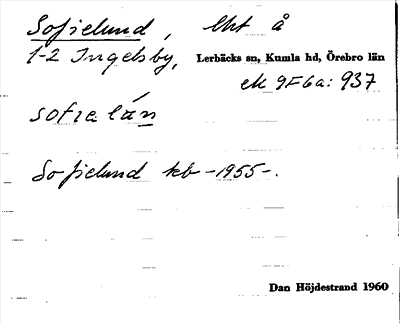 Sofielund, lht å
1-2 Ingelsby, Lerbäcks sn, Kumla hd, Örebro län
ek 9F6a: 937
sofialún
Sofielund kb -1955-.
Dan Höjdestrand 1960